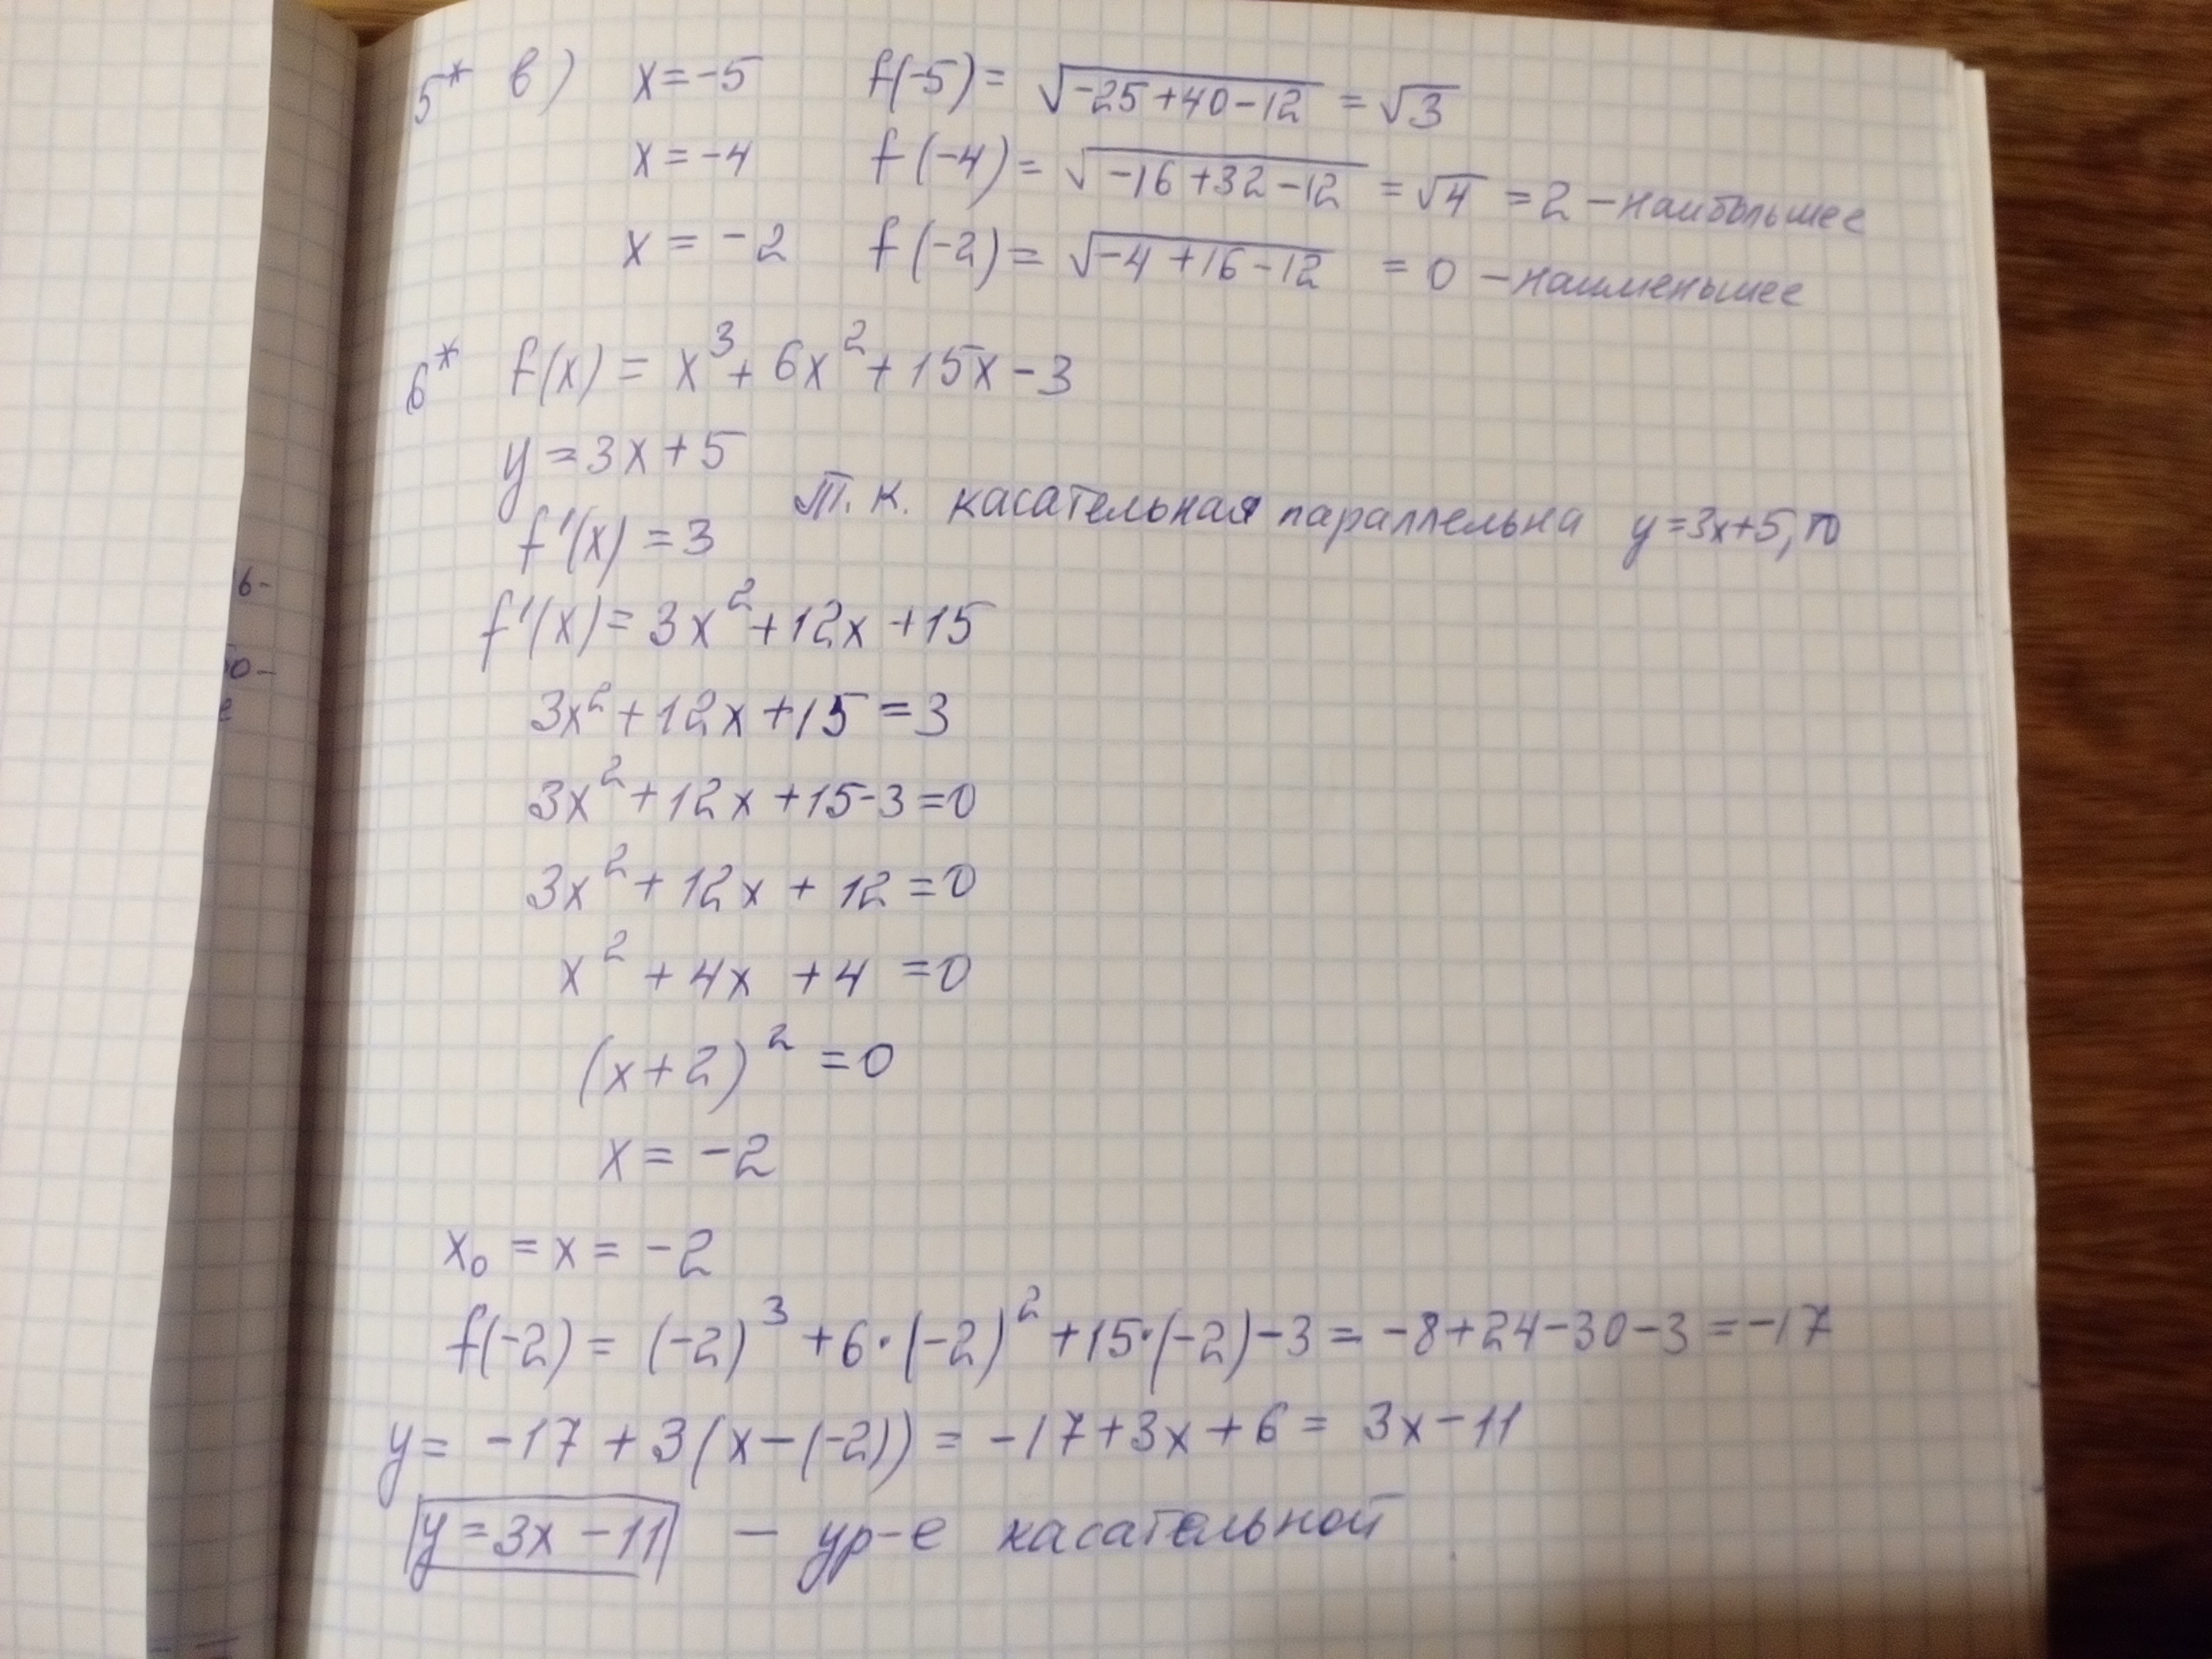 5* в) x=-5 f(-5)= √-25+40-12 = √3
x=-4 f(-4)= √-16+32-12 = √4 = 2 – наибольшее
x = -2 f(-2)= √-4+16-12 = 0 – наименьшее
6* f(x) = x³+ 6x²+15x-3
y=3x+5
Т.к. касательная параллельна y=3x+5, то
f'(x) =3
f'(x)= 3x²+12x+15
3x²+12x+15=3
3x²+12x+15-3=0
3x²+12x+12=0
x²+4x+4=0
(x+2)²=0
x= -2
x₀ = x = -2
f(-2) = (-2)³+6·(-2)²+15·(-2)-3= -8+24-30-3=-17
y= -17+3(x-(-2)) = -17+3x+6= 3x-11
y=3x-11 – ур-е касательной
6-
50-
е